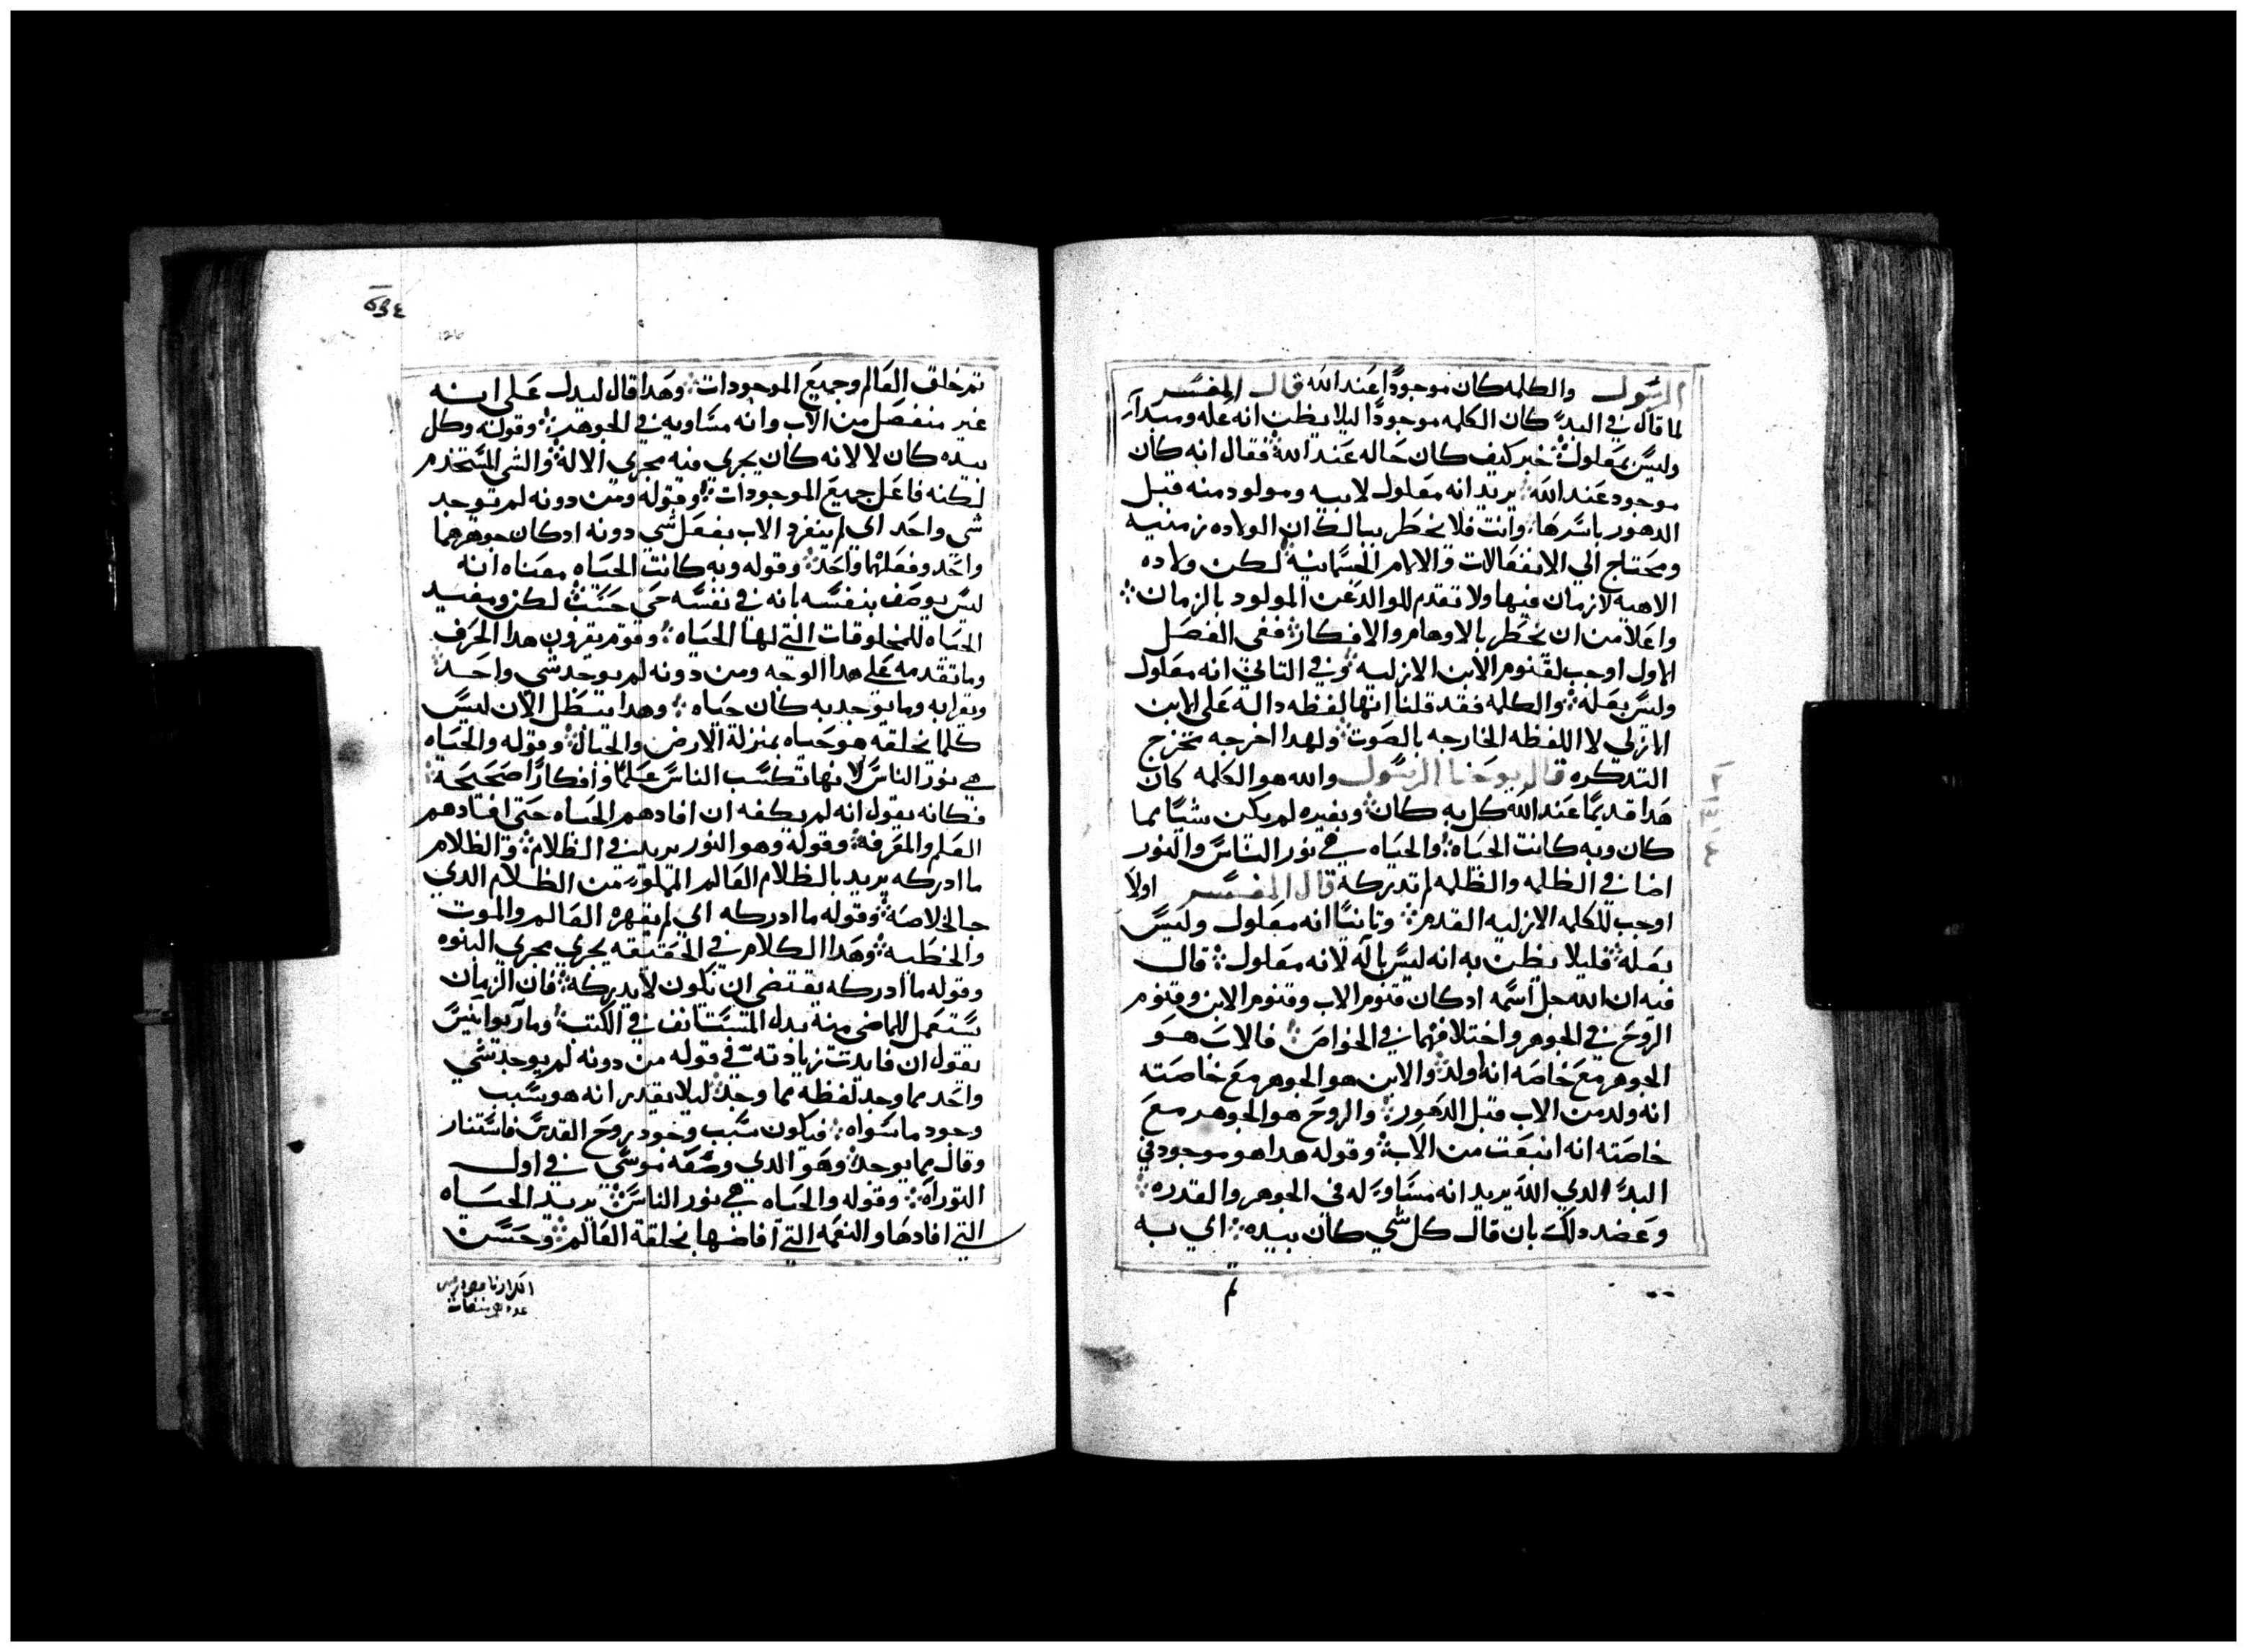 الرسول والكلمه كان موجودًا عند الله قال المفسر
لما قال في البدء كان الكلمه موجودًا ليلا يظن انه عله ومبدا
وليس بمعلول خبر كيف كان حاله عند الله فقال انه كان
موجود عند الله يريد انه معلول لابيه ومولود منه قبل
الدهور باسرها وانت فلا يخطر ببالك ان الولاده زمنيه
ومحتاج الي الانفعالات والالام الجسمانيه لكن ولاده
الاهيه لا زمان فيها ولا تقدم للوالد عن المولود بالزمان
واعلا من ان يخطر بالاوهام والافكار ففي الفصل
الاول اوجب لقنوم الابن الازليه وفي التاني انه معلول
وليس بعله والكلمه فقد قلنا انها لفظه داله على الابن
الازلي لا اللفظه الخارجه بالصوت ولهدا اخرجه مخرج
التدكره قال يوحنا الرسول والله هو الكلمه كان
هدا قديمًا عند الله كل به كان وبغيره لم يكن شيًا مما
كان وبه كانت الحياه والحياه هي نور الناس والنور
اضا في الظلمه والظلمه لم تدركه قال المفسر اولا
اوجب للكلمه الازليه القدم وتانيًا انه معلول وليس
بعله فليلا يظن به انه ليس باله لانه معلول قال
فيه ان الله جل اسمه اد كان قنوم الاب وقنوم الابن وقنوم
الروح في الجوهر واختلافهما في الخواص فالاب هو
الجوهر مع خاصه انه اولد والابن هو الجوهر مع خاصته
انه ولد من الاب قبل الدهور والروح هو الجوهر مع
خاصته انه انبعت من الاب وقوله هدا هو موجود في
البدء الدي الله يريد انه مساوٍ له في الجوهر والقدره
وعضد دلك بان قال كل شي كان بيده اي به
تم خلق العالم وجميع الموجودات وهدا قال ليدل على انه
غير منفصل من الاب وانه مساويه في الجوهر وقوله وكل
بيده كان لا لانه كان يجري فيه مجري الالة والشي المستخدم
لكنه فاعل جميع الموجودات وقوله ومن دونه لم يوجد
شي واحد اي لم ينفرد الاب بفعل شي دونه ادكان جوهرهما
واحد وفعلهما واحد وقوله وبه كانت الحياه معناه انه
ليس يوصف بنفسه بانه في نفسه حي حسب لكن ومفيد
الحياه للمخلوقات التي لها الحياه وقوم يقرون هدا الحرف
وما تقدمه على هدا الوجه ومن دونه لم يوجد شي واحد
ويقرا به وما يوجد به كان حياه وهدا يبطل الان ليس
كلما خلقه هو حياه بمنزلة الارض والجبال وقوله والحياه
هي نور الناس لانها تكسب الناس علمًا وافكارًا صحيحة
فكانه يقول انه لم يكفه ان افادهم الحياه حتى افادهم
العلم والمعرفه وقوله وهو النور يريد في الظلام والظلام
ما ادركه يريد بالظلام العالم المملوء من الظلام الدي
جا لخلاصه وقوله ما ادركه اي لم يقهره العالم والموت
والخطيه وهدا الكلام في الحقيقه يجري مجري النبوه
وقوله ما ادركه يقتضي ان يكون لا يدركه فان الزمان
يستعمل للماضي منه بدل المستانف في الكتب ومار يوانيس
يقول ان فايدت زيادته في قوله من دونه لم يوجد شي
واحد مما وجد لفظه مما وجد ليلا يقدر انه هو سبب
وجود ما سواه فيكون سبب وجود روح القدس فاستنار
وقال مما يوجد وهو الدي وصفه موسى في اول
التوراه وقوله والحياه هي نور الناس يريد الحياه
التي افادها والنعمه التي افاضها بخلقة العالم وحسن